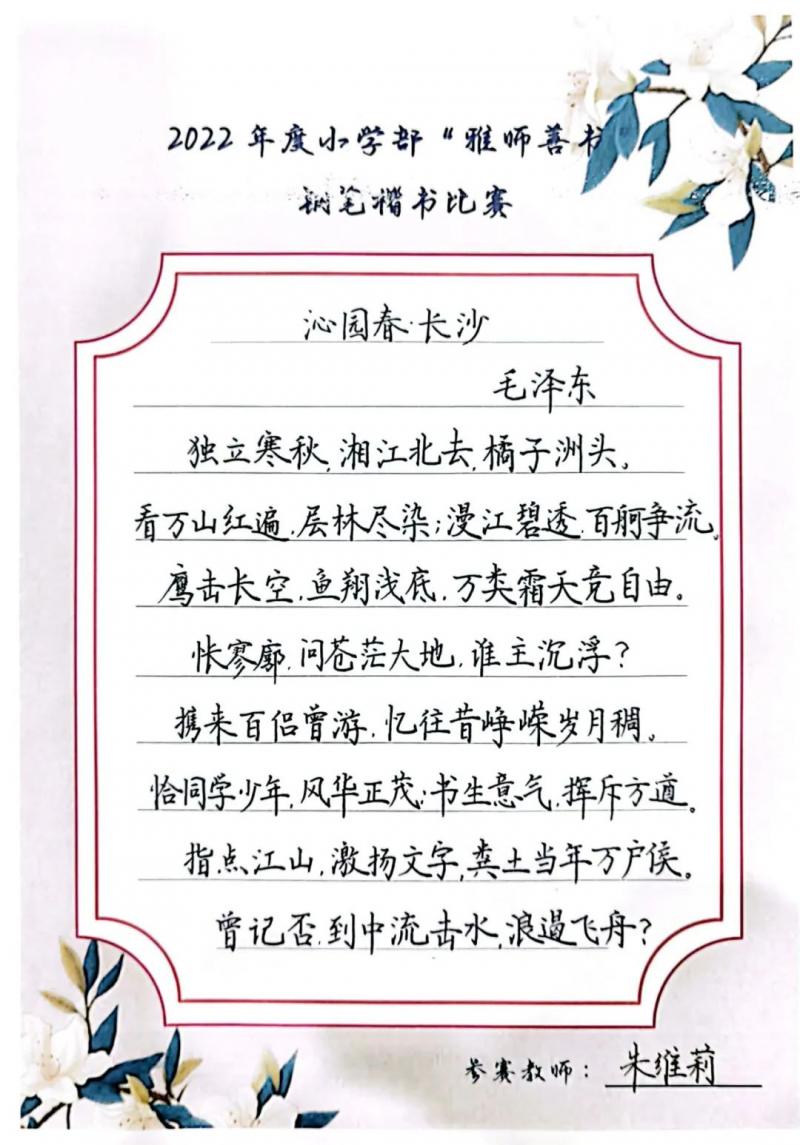 2022年度小学部“雅师善书
钢笔楷书比赛
沁园春·长沙
毛泽东
独立寒秋,湘江北去,橘子洲头。
看万山红遍,层林尽染;漫江碧透,百舸争流。
鹰击长空,鱼翔浅底,万类霜天竞自由。
怅寥廓,问苍茫大地,谁主沉浮?
携来百侣曾游,忆往昔峥嵘岁月稠。
恰同学少年,风华正茂;书生意气,挥斥方遒。
指点江山,激扬文字,粪土当年万户侯。
曾记否,到中流击水,浪遏飞舟?
参赛教师:朱维莉